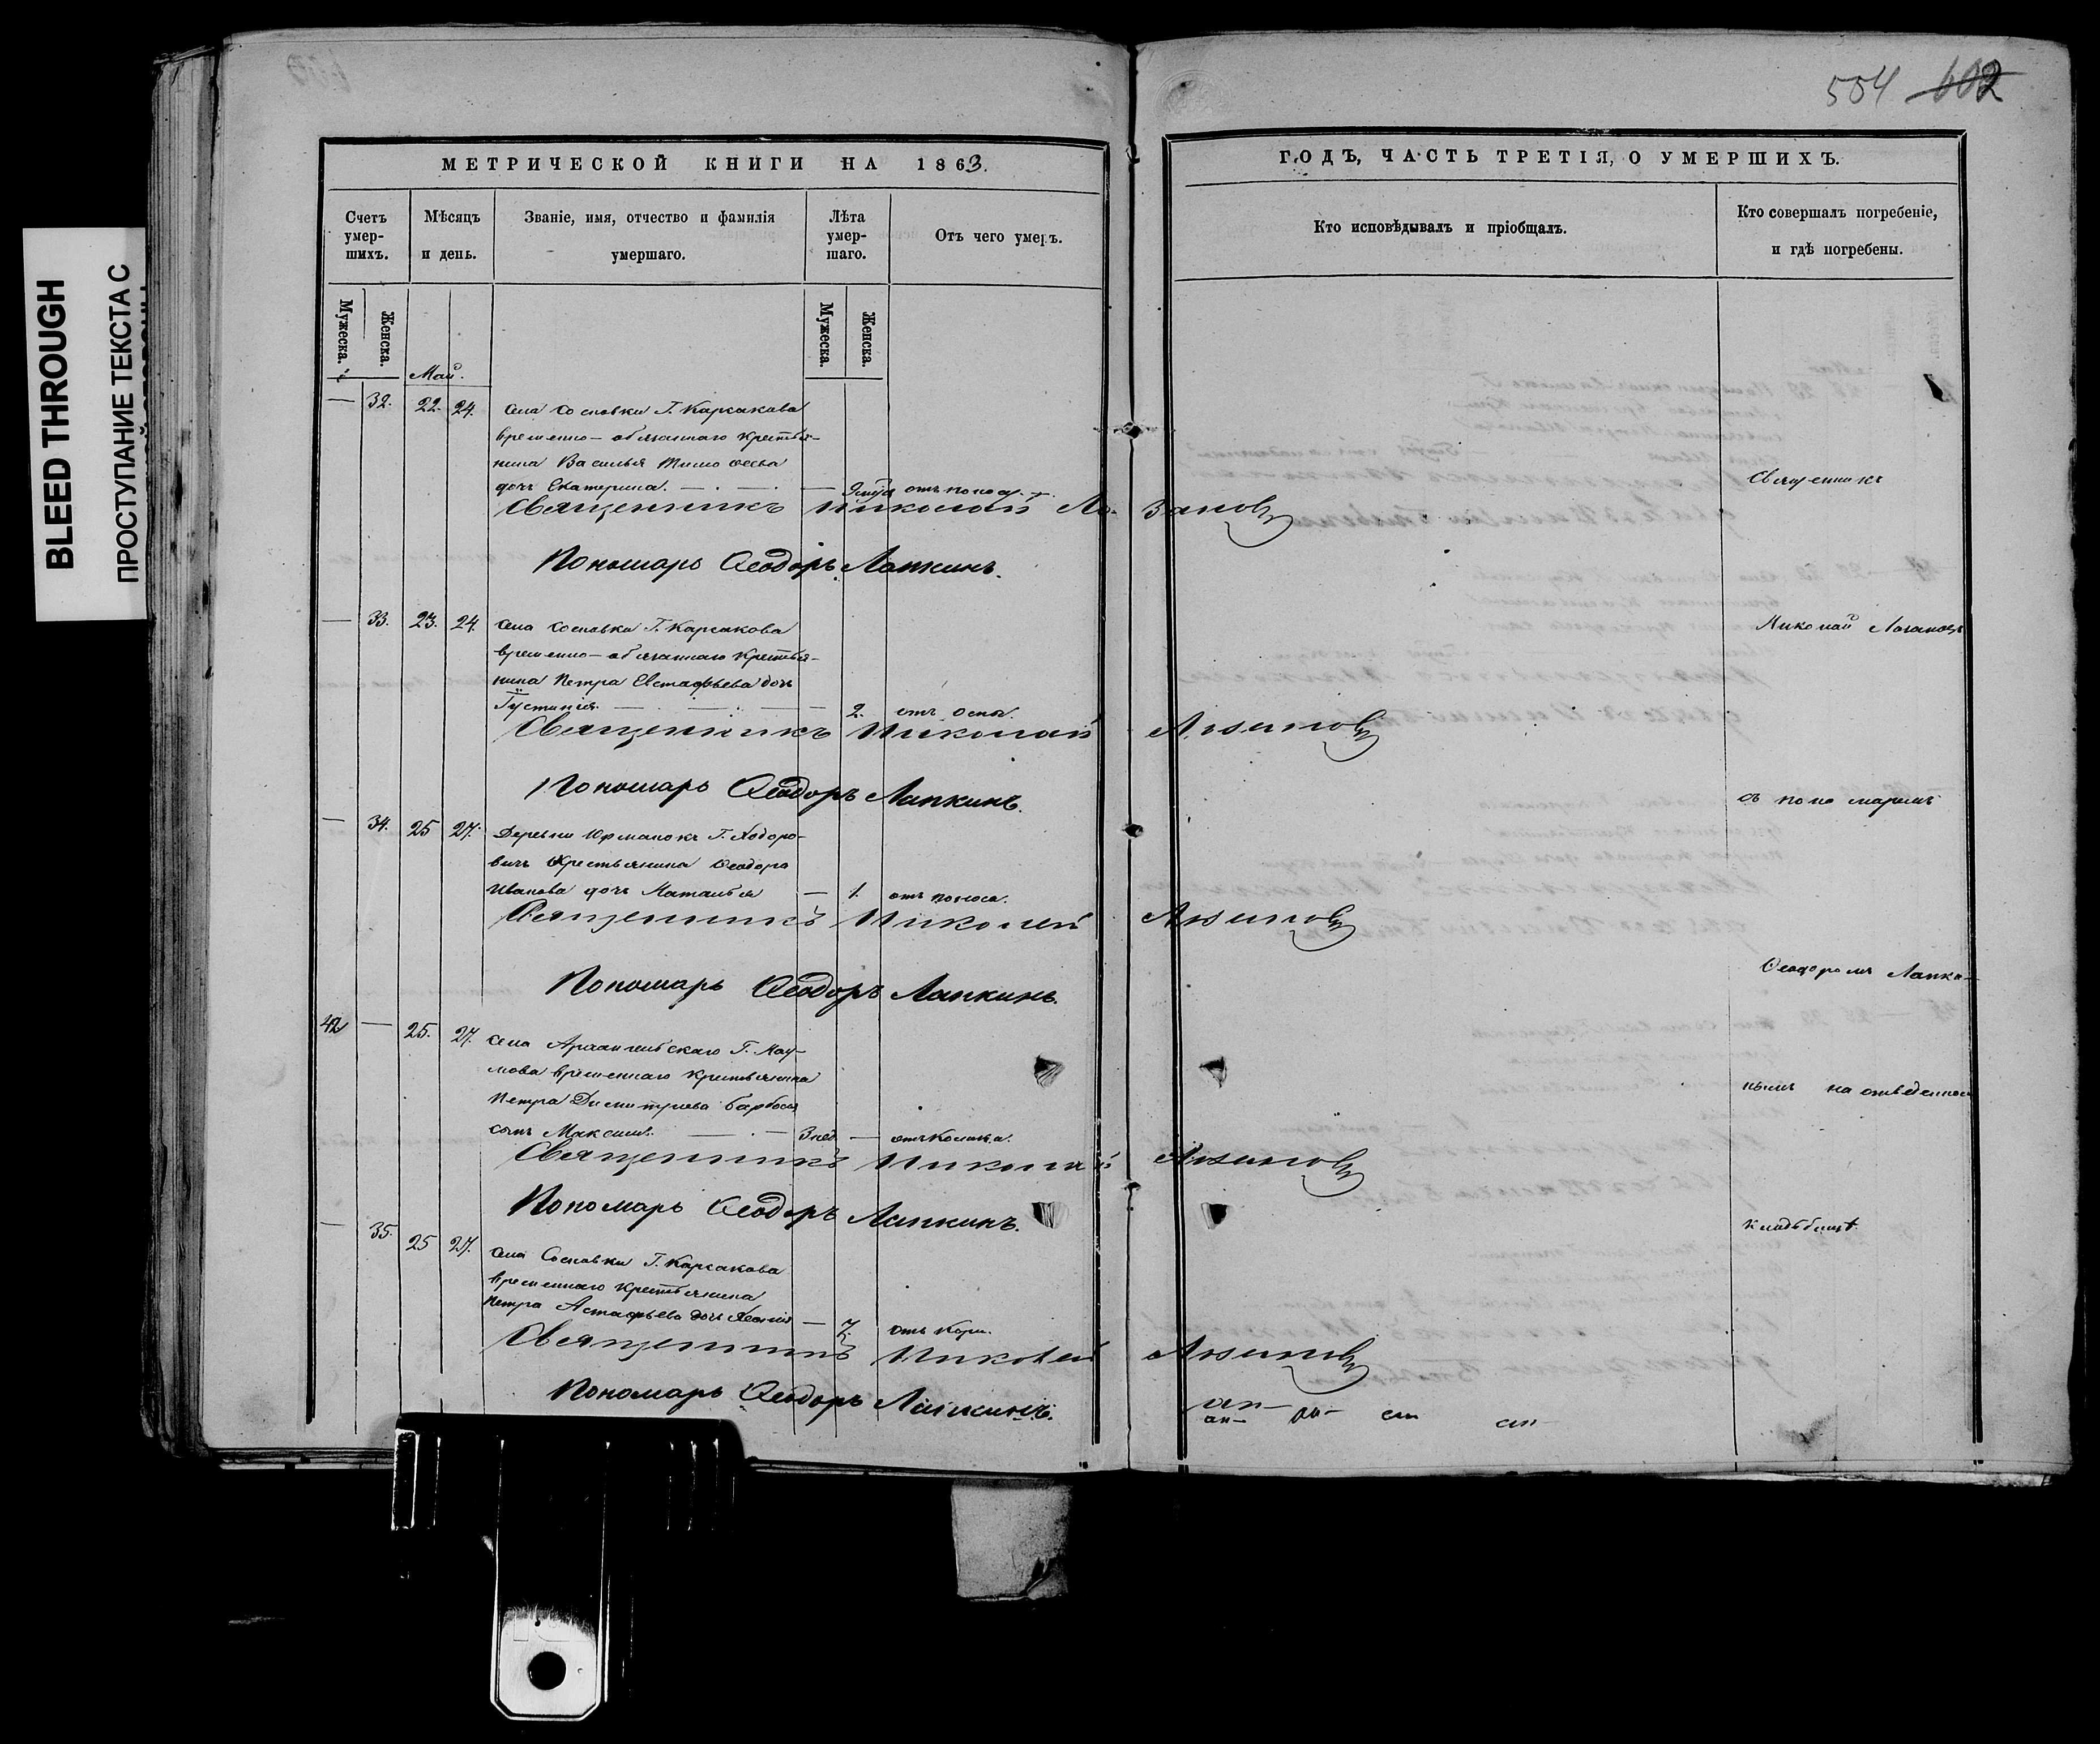 554 602
BLEED THROUGH
ПРОСТУПАНИЕ ТЕКСТА С
МЕТРИЧЕСКОЙ КНИГИ НА 1863.
ГОДЪ, ЧАСТЬ ТРЕТІЯ, О УМЕРШИХЪ.
Счетъ умер-шихъ.
Мѣсяцъ и день.
Званіе, имя, отчество и фамилія умершаго.
Лѣта умер-шаго.
Отъ чего умеръ.
Кто исповѣдывалъ и пріобщалъ.
Кто совершалъ погребеніе, и гдѣ погребены.
Мужеска. Женска. Мужеска. Женска.
Май.
— 32. 22. 24. Села Сосновки Г. Карсакова
временно-обязаннаго крестья-
нина Василья Тимофеева
дочь Екатерина. —
Священникъ Николай Лозановъ
Пономарь Феодоръ Лапкинъ.
— 33. 23. 24. Села Сосновки Г. Карсакова
временно-обязаннаго крестья-
нина Петра Евстафьева дочь
Іустинія — 2. отъ оспы.
Священникъ Николай Лозановъ
Пономарь Феодоръ Лапкинъ.
— 34. 25 27. Деревни
крестьянина Феодора
Иванова дочь Наталья — 1. отъ поноса.
Священникъ Николай Лозановъ
Пономарь Феодоръ Лапкинъ.
42 — 25. 27. Села Архангельскаго Г. Нау-
мова временнаго крестьянина
Петра Димитріева
сынъ Максимъ. — 3 нед. —
Священникъ Николай Лозановъ
Пономарь Феодоръ Лапкинъ.
— 35. 25 27. Села Сосновки Г. Карсакова
временнаго крестьянина
Петра Астафьева дочь — 7. отъ кори.
Священникъ Николай Лозановъ
Пономарь Феодоръ Лапкинъ.
Священникъ
Николай Лозановъ
съ пономаремъ
Феодоромъ Лапки-
нымъ на отведенномъ
кладбищѣ.